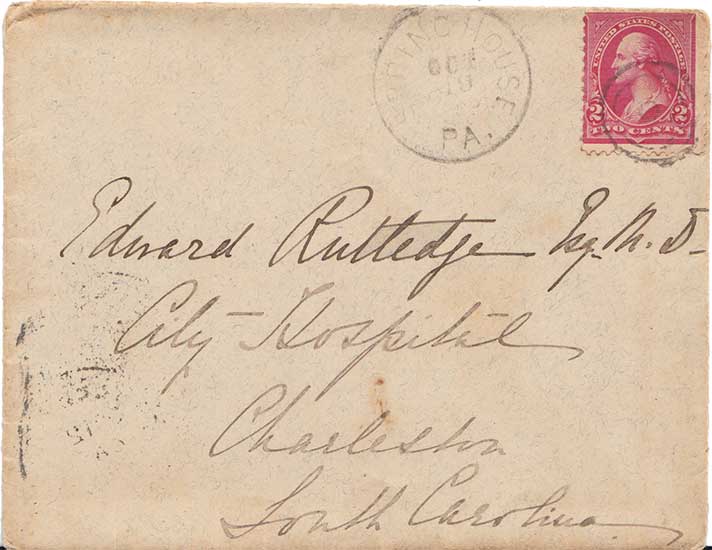 SPRING HOUSE
OCT
19
PA.
UNITED STATES POSTAGE
2 2
TWO CENTS
Edward Rutledge Esq. M. D.
City Hospital
Charleston
South Carolina